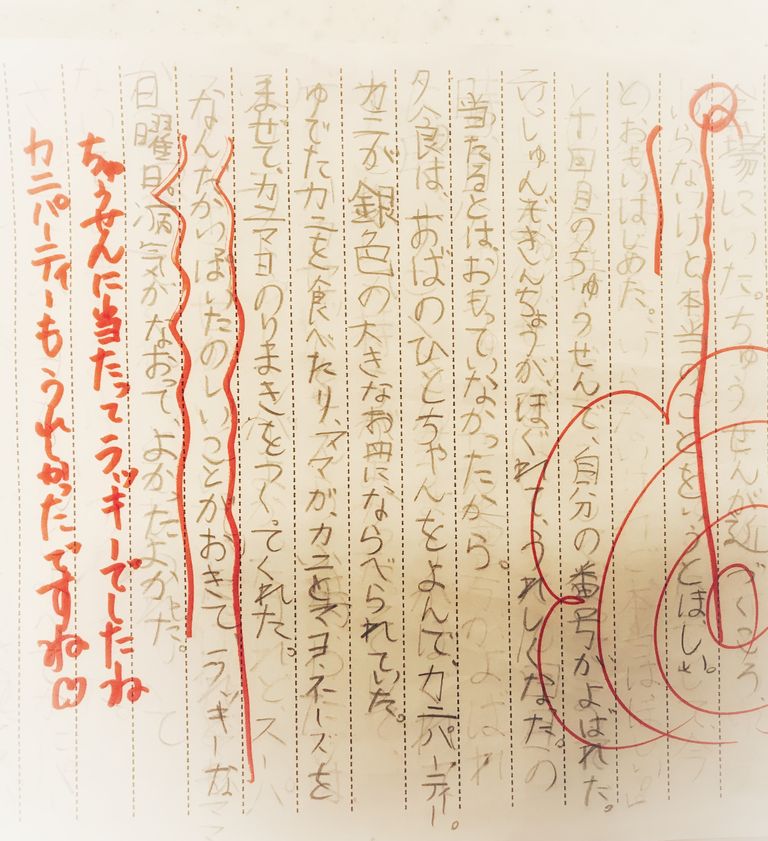 会場にいた。ちゅうせんが近づくころ、
いらないけど本当のことをいうとほしい。
とおもいはじめた。
十回目のちゅうせんで、自分の番号がよばれた。
しゅんできんちょうが、ほぐれて、うれしくなった。
当たるとはおもっていなかったから。
夕食は、おばのひとちゃんをよんで、カニパーティー。
カニが銀色の大きなお皿にならべられていた。
ゆでたカニを食べたり、ママが、カニとマヨネーズを
まぜて、カニマヨのりまきをつくってくれた。
なんだかいっぱいたのしいことがおきて、ラッキーな
日曜日。病気がなおって、よかったよかった。
ちゅうせんに当たってラッキーでしたね
カニパーティーもうれしかったですね